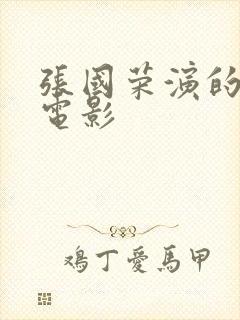 張國荣演的
電影
鸡丁愛馬甲